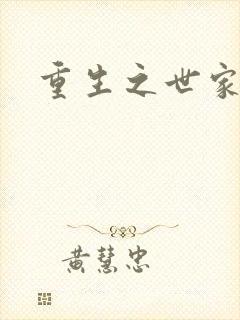 重生之世家
黄慧忠